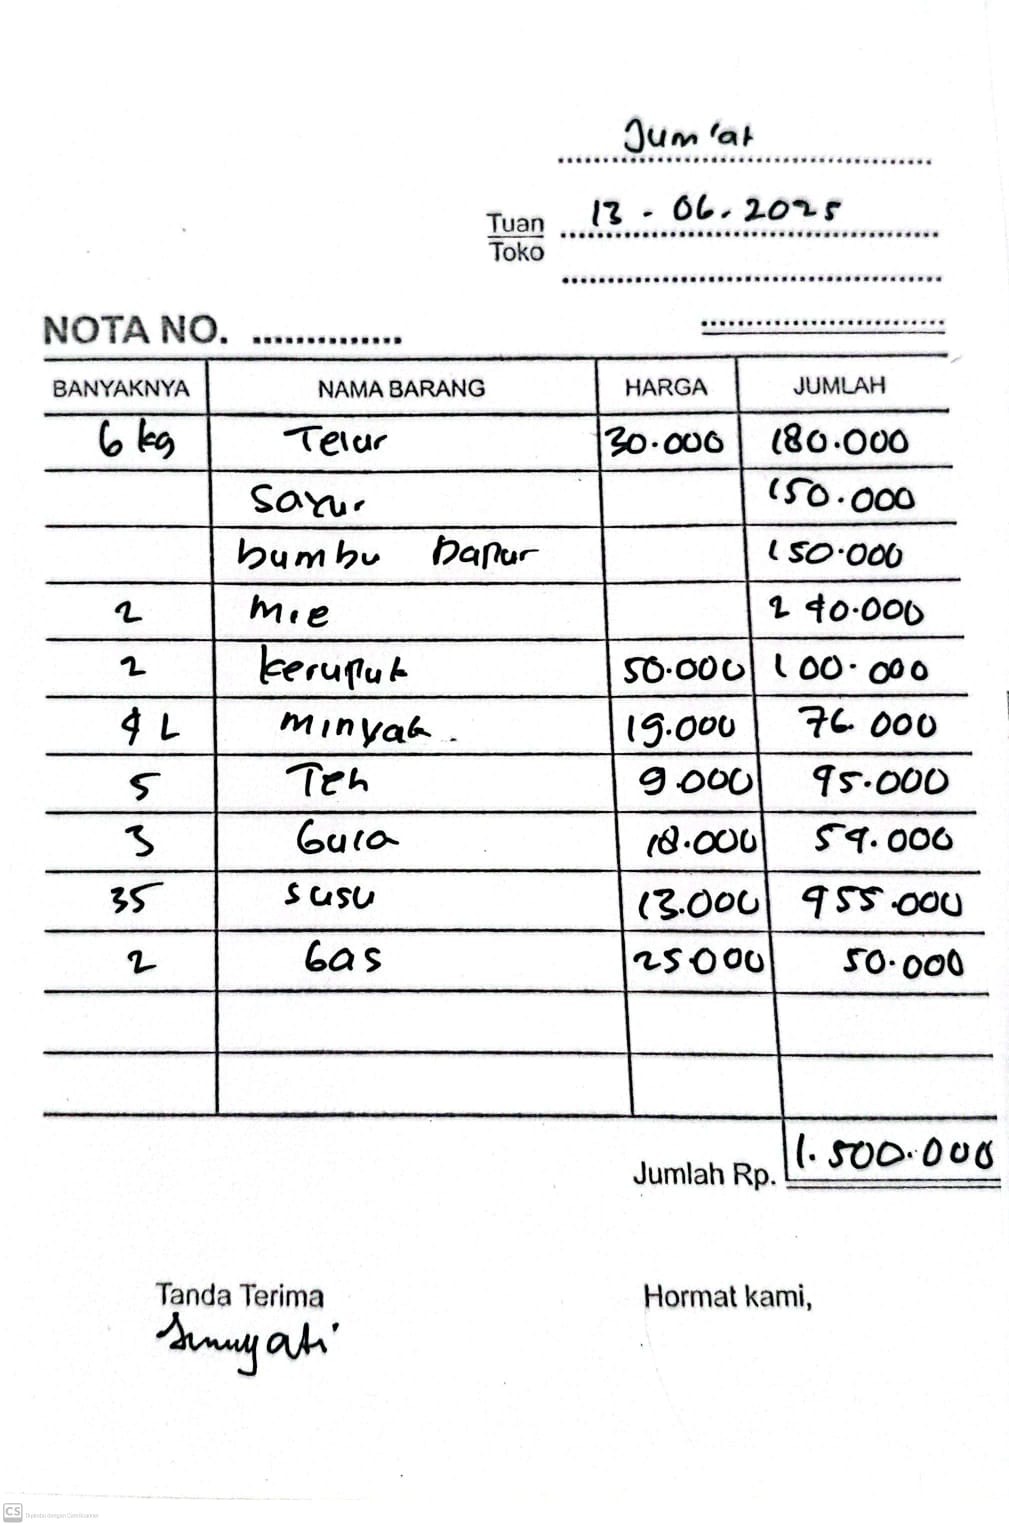 Jum'at
Tuan 13 - 06. 2025
Toko
NOTA NO. ..............
BANYAKNYA NAMA BARANG HARGA JUMLAH
6 kg Telur 30.000 180.000
Sayur 150.000
bumbu Dapur 150.000
2 Mie 240.000
2 kerupuk 50.000 100.000
4 L minyak. 19.000 76.000
5 Teh 9.000 45.000
3 Gula 18.000 54.000
35 susu 13.000 455.000
2 Gas 25000 50.000
Jumlah Rp. 1.500.000
Tanda Terima Hormat kami,
Sumyati
CS Dipindai dengan CamScanner